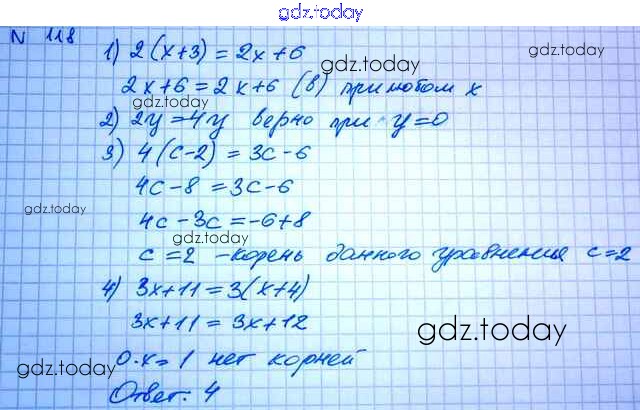 gdz.today
N 118
1) 2(x+3) = 2x+6
gdz.today
2x+6 = 2x+6 (в) при любом x
gdz.today
2) 2y=4y верно при y=0
3) 4(c-2) = 3c-6
4c-8 = 3c-6
gdz.today
4c-3c=-6+8
gdz.today
c=2 -корень данного уравнения c=2
4) 3x+11=3(x+4)
3x+11=3x+12
gdz.today
0·x=1 нет корней
gdz.today
Ответ: 4